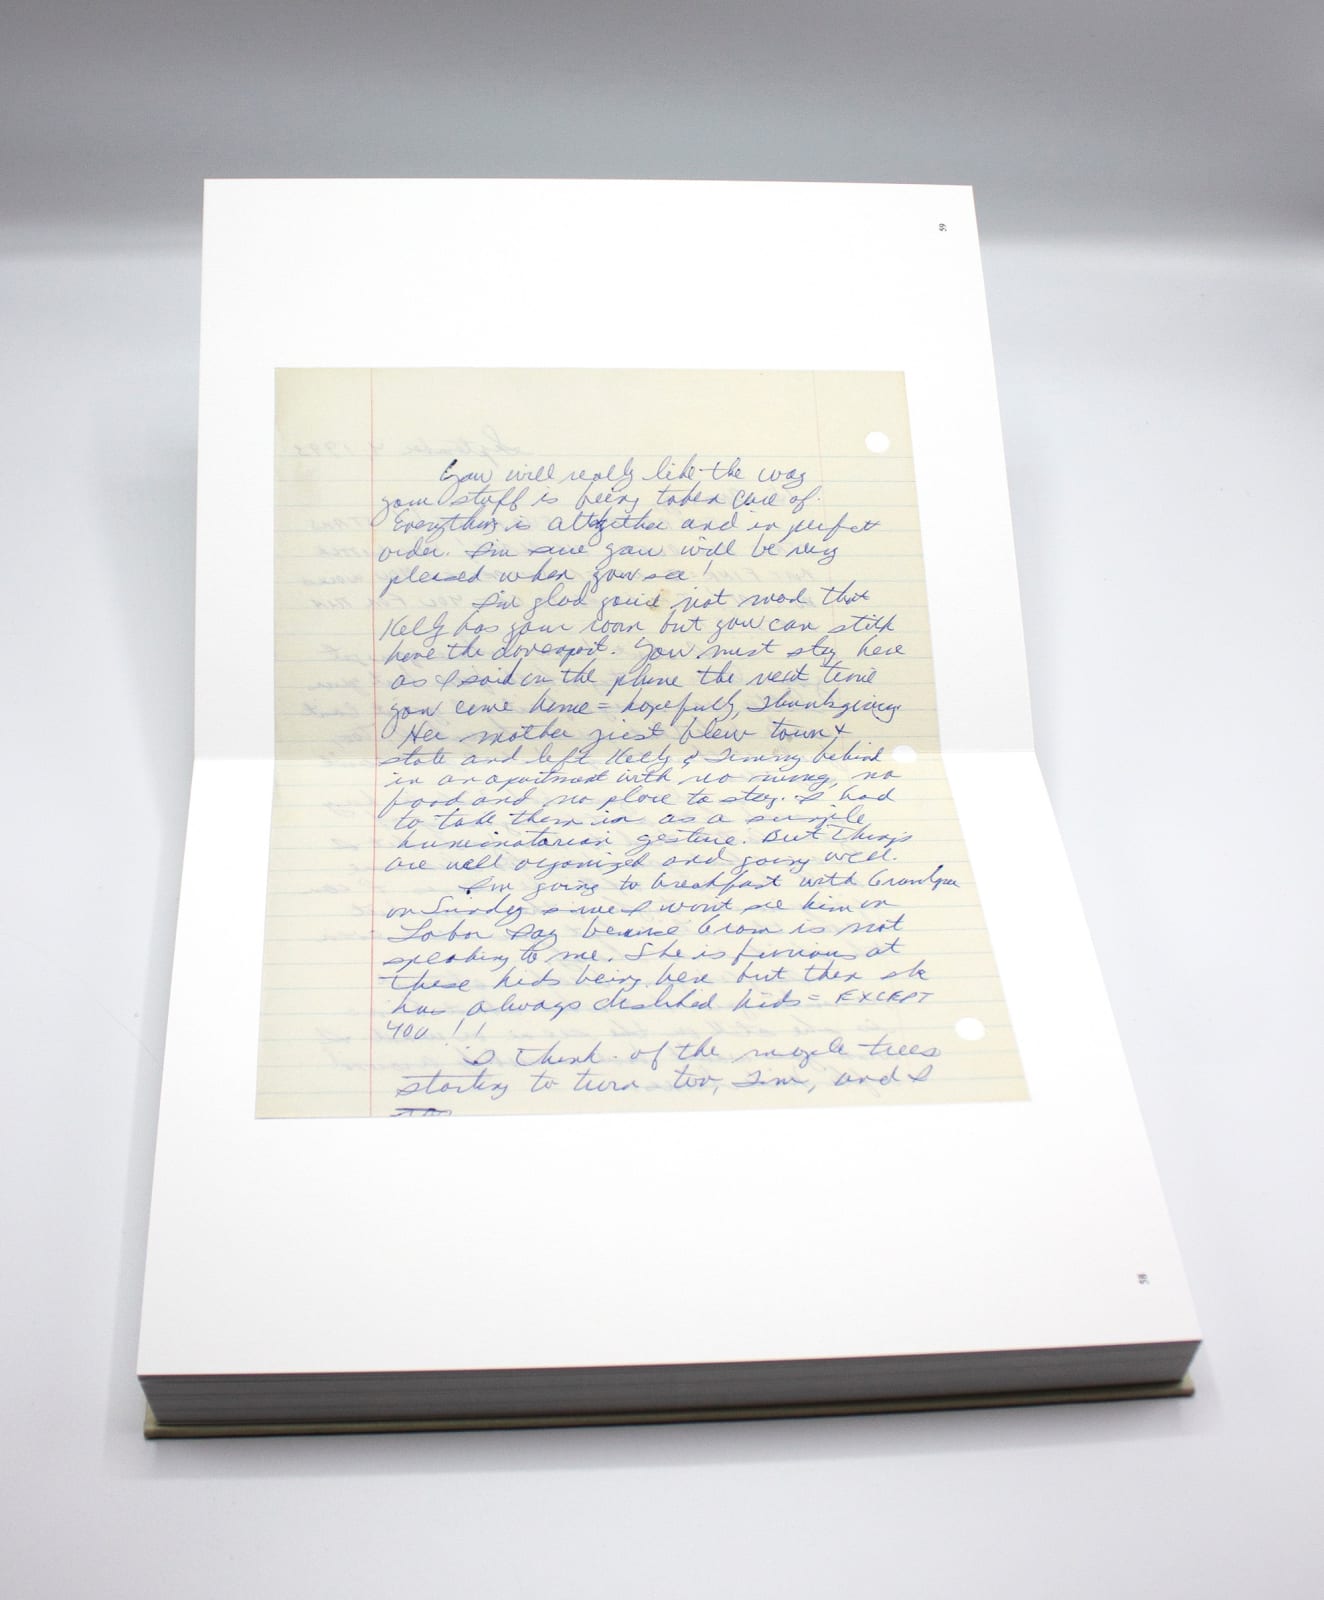 59
You will really like the way
your stuff is being taken care of.
Everything is altogether and in perfect
order. I'm sure you will be very
pleased when you see!
I'm glad you're not mad that
Kelly has your room but you can still
have the davenport. You must stay here
as I said on the phone the next time
you come home = hopefully, Thanksgiving
Her mother just blew town &
state and left Kelly & Timmy behind
in an apartment with no money, no
food and no place to stay. I had
to take them in as a simple
humanatarian gesture. But things
are well organized and going well.
I'm going to breakfast with Grandpa
on Sunday since I won't see him on
Labor Day because Gram is not
speaking to me. She is furious at
these kids being here but then she
has always disliked kids = EXCEPT
YOU!!
I think of the maple trees
starting to turn too, Jim, and I
58